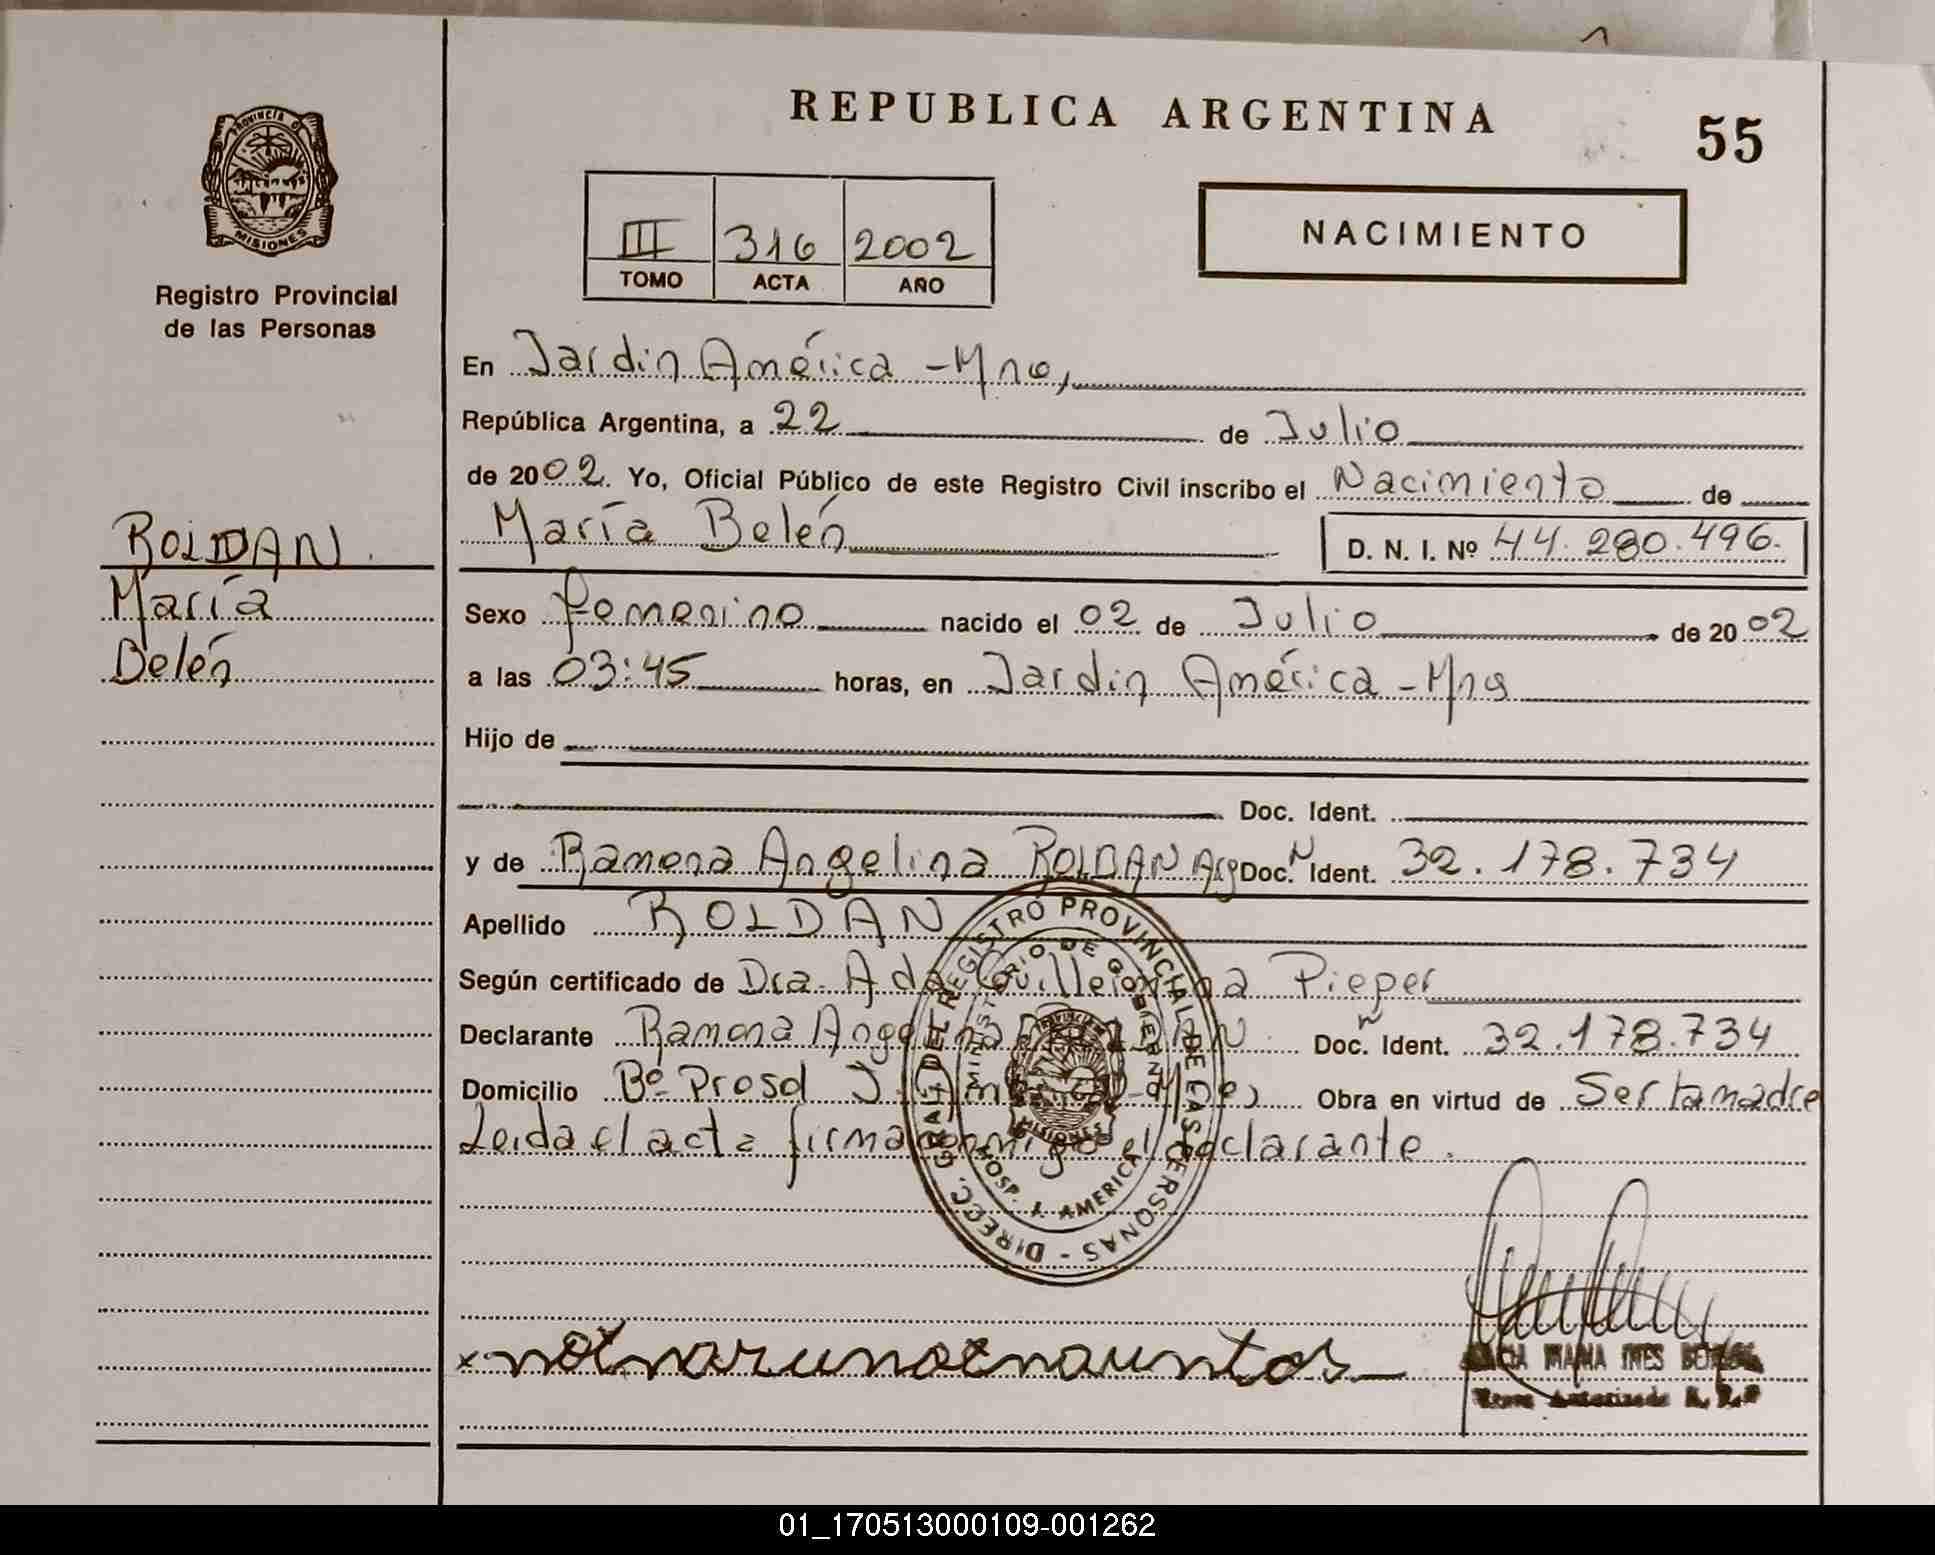 REPUBLICA ARGENTINA
55
PROVINCIA D
MISIONES
Registro Provincial
de las Personas
III 316 2002
TOMO ACTA AÑO
NACIMIENTO
En Jardin América - Mnes,
República Argentina, a 22 de Julio
de 2002. Yo, Oficial Público de este Registro Civil inscribo el Nacimiento de
María Belén D. N. I. Nº 44.280.496.
ROLDAN.
María
Belén
Sexo femenino nacido el 02 de Julio de 2002
a las 03:45 horas, en Jardin América - Mnes
Hijo de
Doc. Ident.
y de Ramona Angelina ROLDAN Arg Doc. N Ident. 32.178.734
Apellido ROLDAN
Según certificado de Dra. Ada Guillermina Pieper
Declarante Ramona Angelina ROLDAN Doc. Ident. 32.178.734
Domicilio Bº Prosol Obra en virtud de Ser la madre
Leida el acta firma conmigo el declarante.
DIRECC. GRAL. DEL REGISTRO PROVINCIAL DE LAS PERSONAS
MINISTERIO DE GOBIERNO
HOSP. J. AMERICA
MISIONES
MARIA INES
01_170513000109-001262